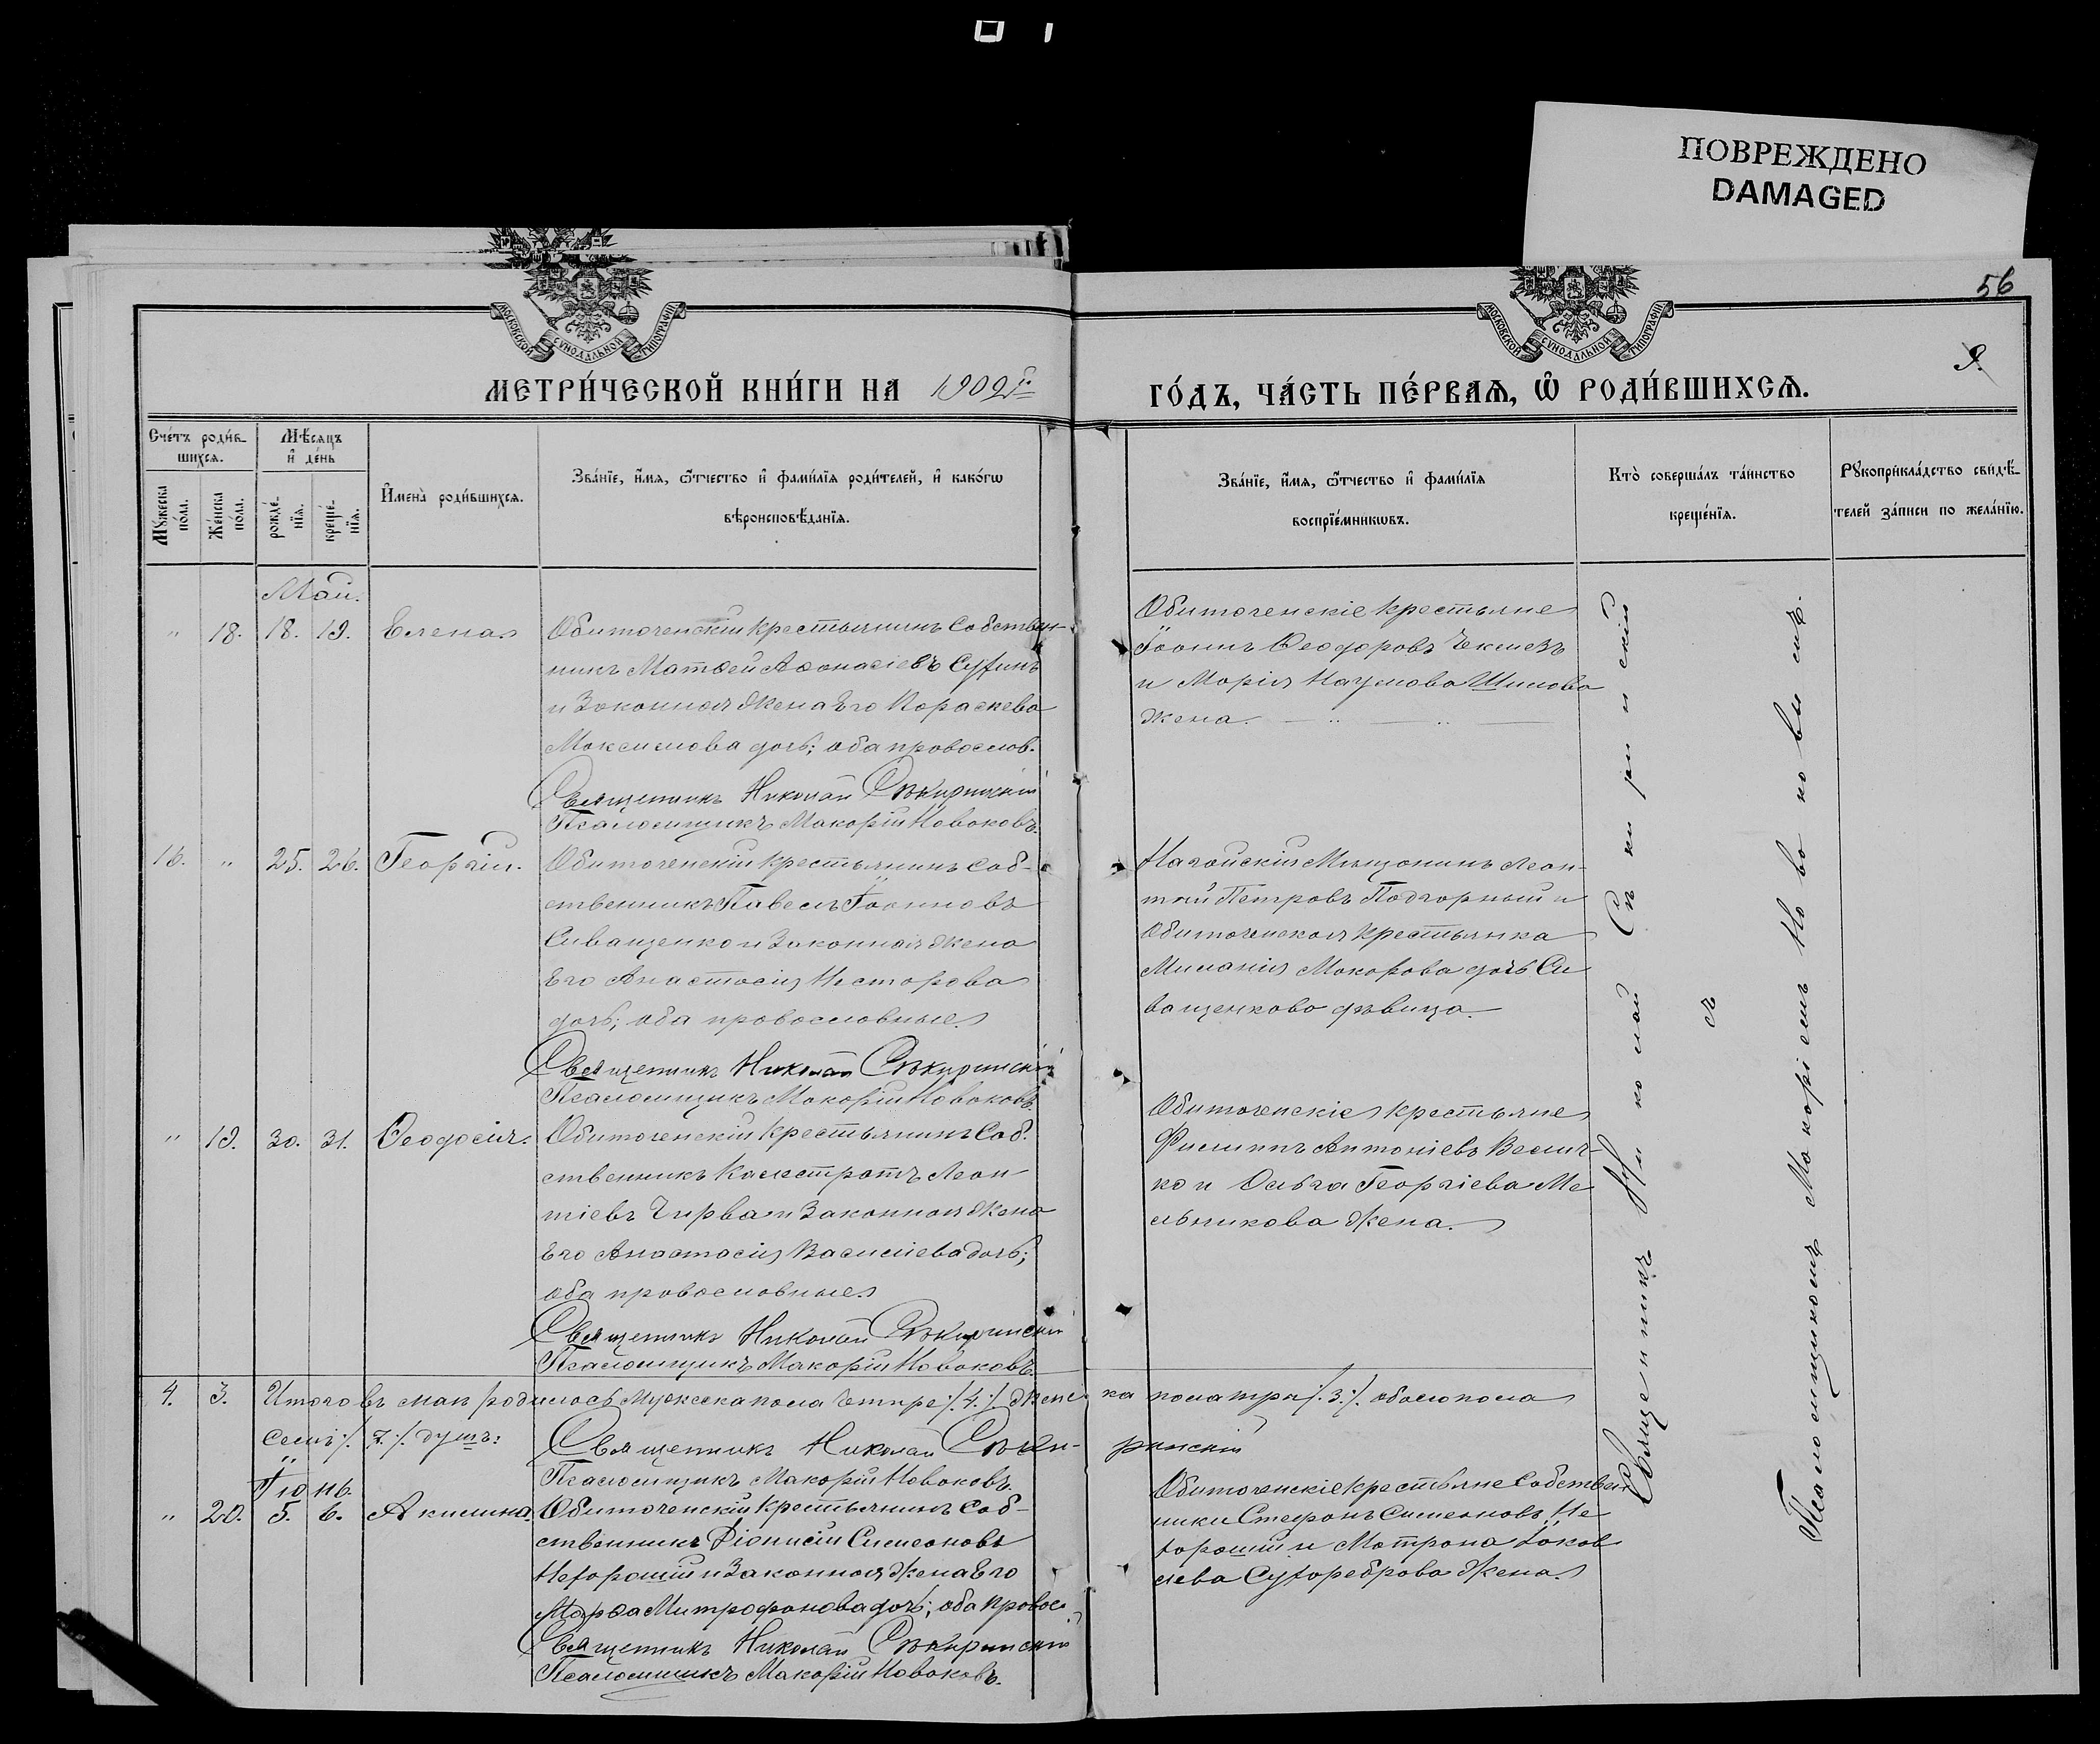 ПОВРЕЖДЕНО
DAMAGED
56
9.
МОСКОВСКОЙ СѴНОДАЛЬНОЙ ТИПОГРАФІИ
МОСКОВСКОЙ СѴНОДАЛЬНОЙ ТИПОГРАФІИ
МЕТРИ́ЧЕСКОЙ КНИ́ГИ НА 1902 г.
ГО́ДЪ, ЧА́СТЬ ПЕ́РВАѦ, Ѡ҆ РОДИ́ВШИХСѦ.
Сче́тъ роди́в-
шихсѧ.
Мѣ́сѧцъ
и҆ де́нь
Мꙋ́жеска
по́ла.
Же́нска
по́ла.
рожде́-
нїѧ.
креще́-
нїѧ.
И҆мена̀ роди́вшихсѧ.
Зва́нїе, и҆́мѧ, ѻ҆́тчество и҆ фами́лїѧ роди́телей, и҆ како́гѡ
вѣроисповѣ́данїѧ.
Зва́нїе, и҆́мѧ, ѻ҆́тчество и҆ фами́лїѧ
воспрїе́мникѡвъ.
Кто̀ соверша́лъ та́инство
креще́нїѧ.
Рꙋкоприкла́дство свидѣ́-
телей за́писи по жела́нїю.
Май.
" 18. 18. 19. Елена
Обиточенскій крестьянинъ собствен-
никъ Матѳей Аѳонасіевъ Сухинъ
и законная жена Его Параскева
Максимова дочь; оба православ.
Священникъ Николай Сѣкиринскій
Псаломщикъ Макарій Новаковъ.
Обиточенскіе крестьяне
Іоаннъ Ѳеодоровъ
и Марія Наумова Шилова
жена.
16. " 25. 26. Георгій.
Обиточенскій крестьянинъ соб-
ственникъ Павелъ Іоанновъ
Сиващенко и законная жена
Его Анастасія Несторова
дочь; оба православные.
Священникъ Николай Сѣкиринскій
Псаломщикъ Макарій Новаковъ.
Ногайскій Мѣщанинъ Леон-
тій Петровъ Подгорный и
Обиточенская крестьянка
Миланія Макарова дочь Си
ващенкова дѣвица.
" 19. 30. 31. Ѳеодосія.
Обиточенскій крестьянинъ Соб.
ственникъ Калистратъ Леон
тіевъ Чирва и законная жена
Его Анастасія Василіева дочь;
оба православные.
Священникъ Николай Сѣкиринскій
Псаломщикъ Макарій Новаковъ.
Обиточенскіе крестьяне
Филиппъ Антоніевъ Велич-
ко и Ольга Георгіева Ме
льникова жена.
4. 3. Итого въ маѣ родилось Мужеска пола четыре ./. 4 ./. женс ка пола три ./. 3 ./. обоего пола
семь ./. 7 ./. душъ:
Священникъ Николай Сѣки-ринскій
Псаломщикъ Макарій Новаковъ.
Іюнь.
" 20. 5. 6. Акилина.
Обиточенскій крестьянинъ соб-
ственникъ Діонисій Симеоновъ
Нехорошій и законная жена Его
Марѳа Митрофанова дочь; оба правос.
Священникъ Николай Сѣкиринскій
Псаломщикъ Макарій Новаковъ.
Обиточенскіе крестьяне собствен
ники Стефанъ Симеоновъ Не
хорошій и Матрона Іаков
лева Сухореброва жена.
Священникъ Николай Сѣкиринскій
съ
Псаломщикомъ Макаріемъ Новаковымъ.